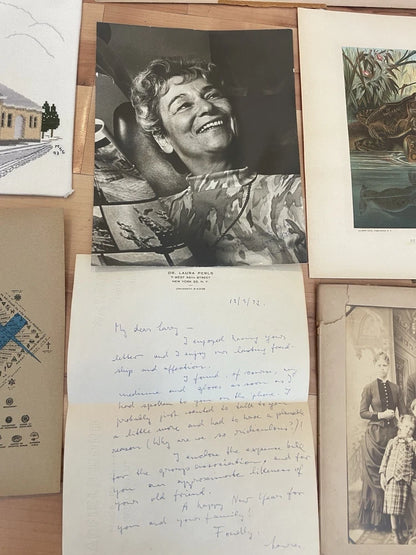 DR. LAURA PERLS
7 WEST 96TH STREET
NEW YORK 25, N. Y.
12/9/72.
My dear Larry –
I enjoyed having your
letter and I enjoy our lasting friend-
ship and affection.
I found, of course, my
medicine and gloves as soon as I
had spoken to you on the phone. I
probably just wanted to talk to you
a little more and had to have a plausible
reason (Why are we so ridiculous?)!
I enclose the expense bill
for the group associations, and for
you an approximate likeness of
your old friend.
A happy New Year for
you and your family!
Fondly,
Laura